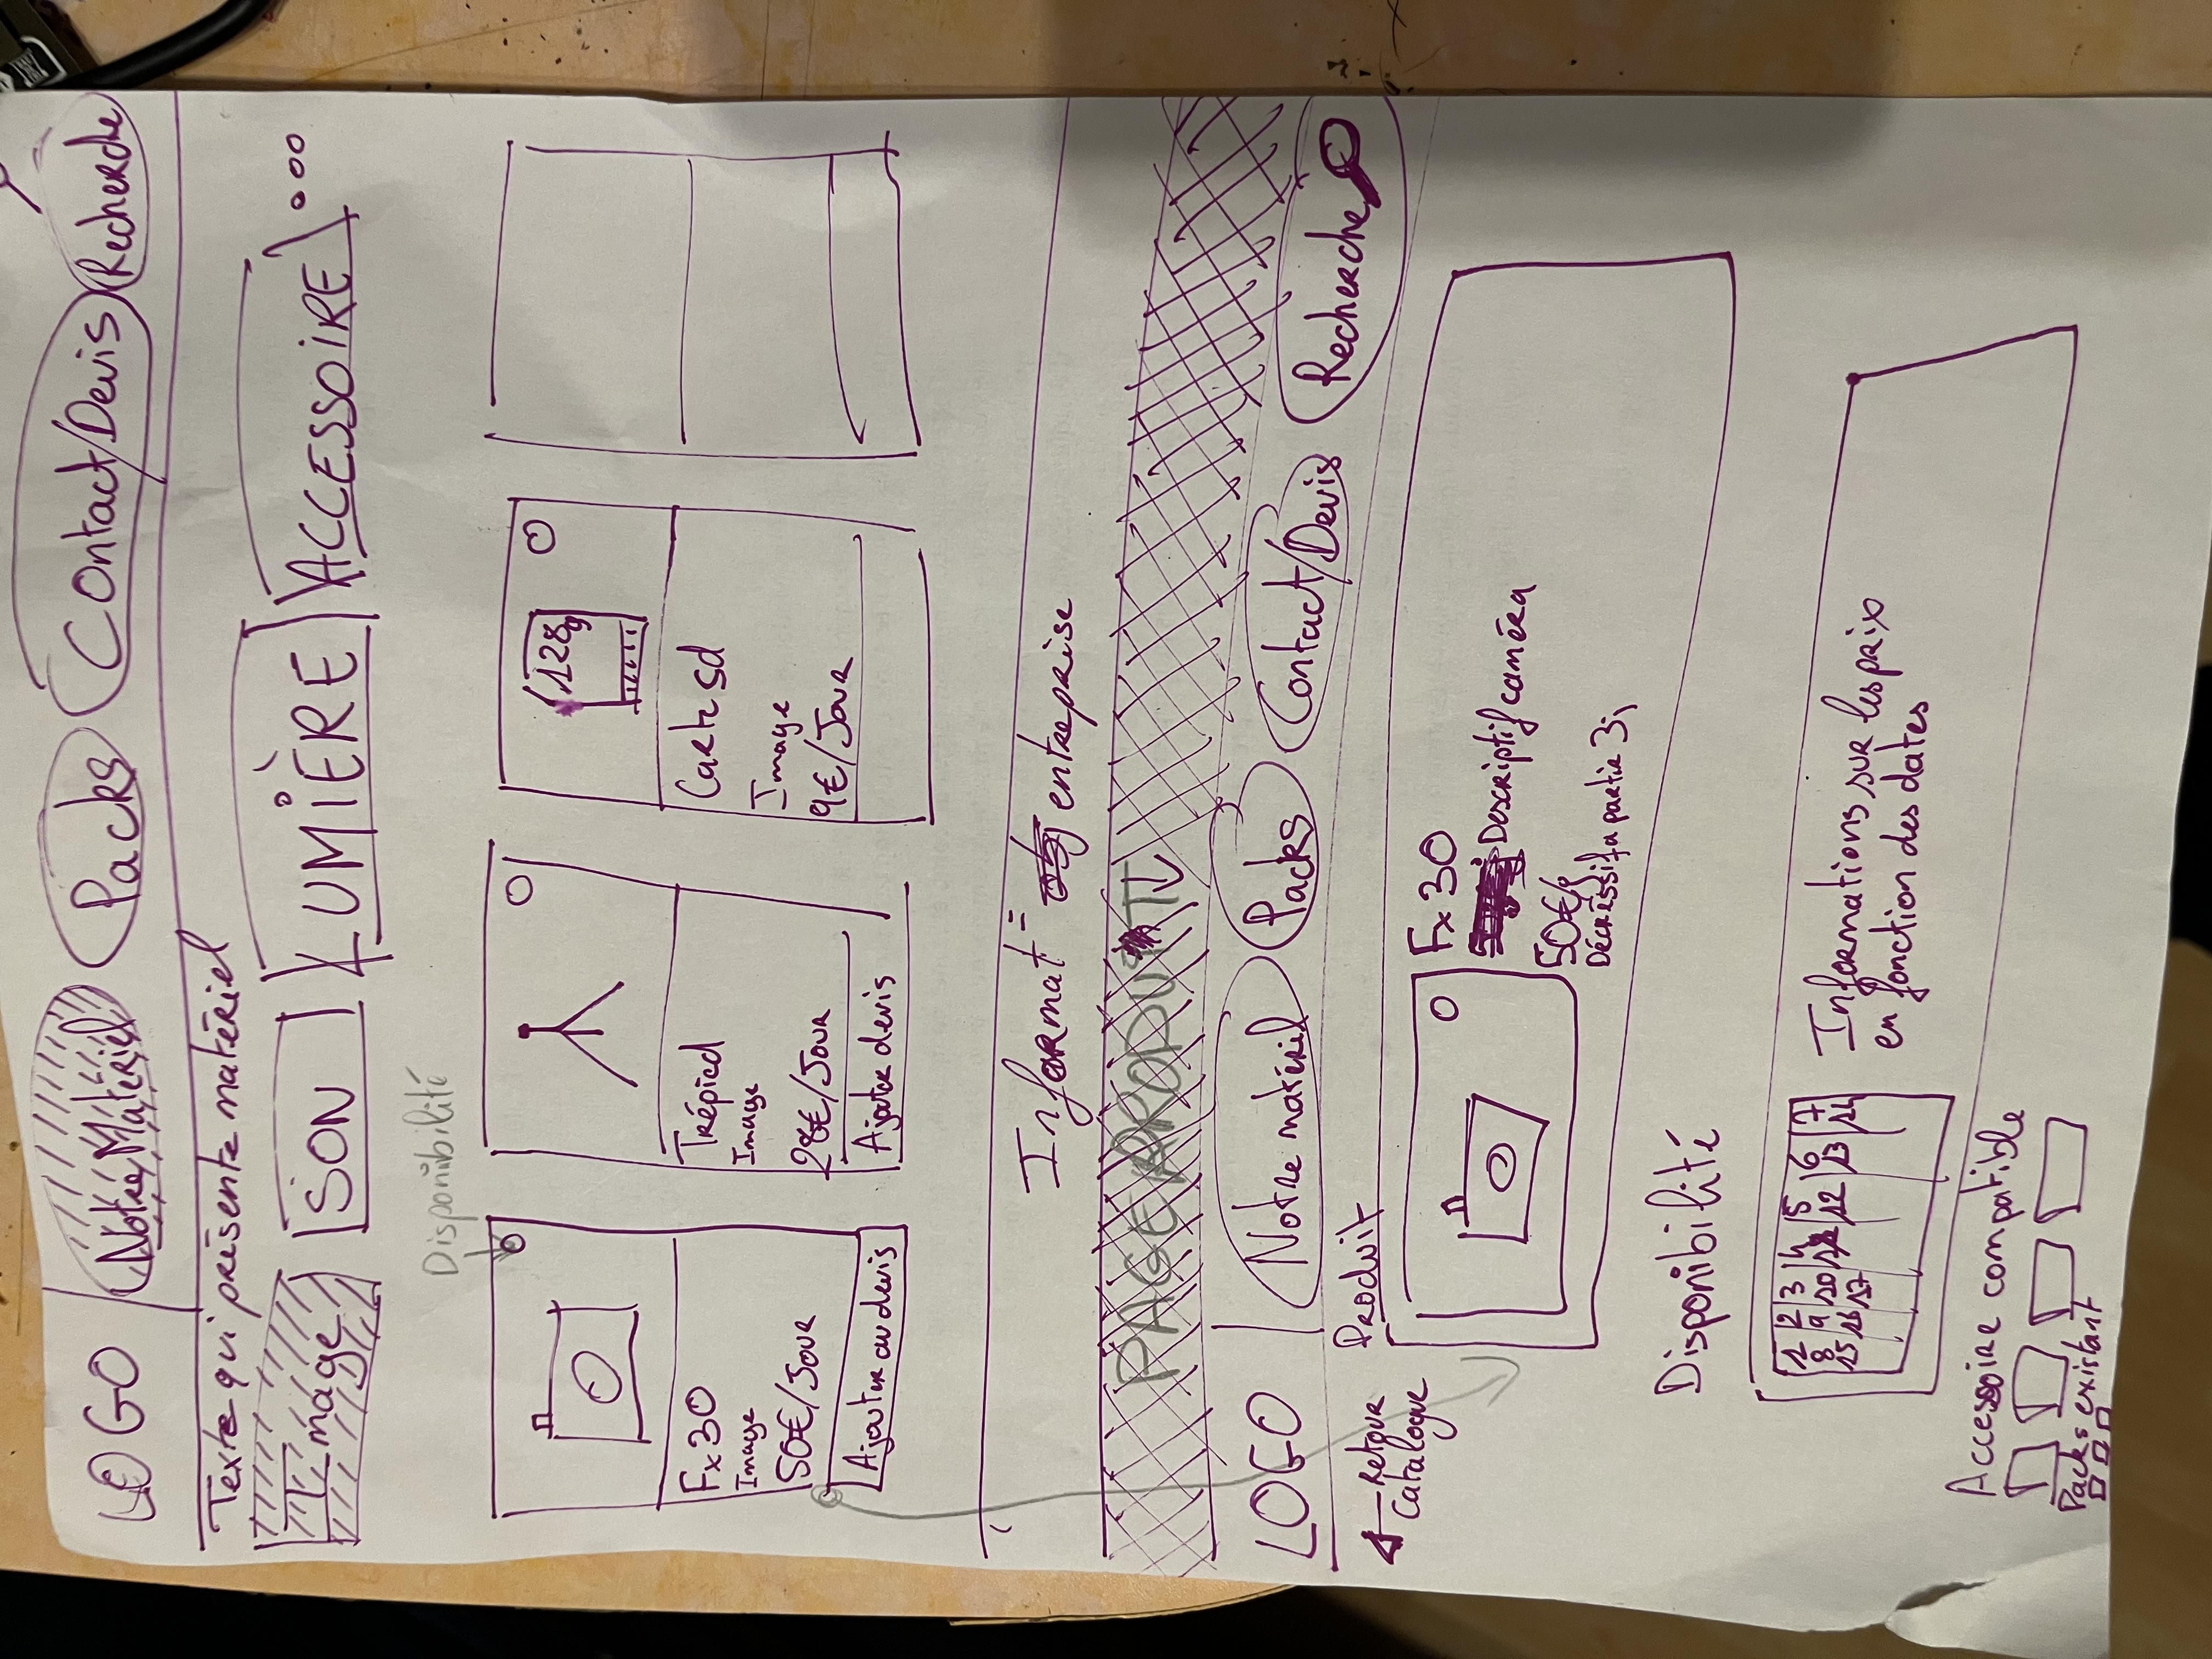 LOGO Notre Matériel Packs Contact/Devis Recherche
Texte qui présente matériel
Image SON LUMIÈRE ACCESSOIRE ...
Disponibilité
128g
Fx30 Trépied Carte sd
Image Image Image
50€/Jour 28€/Jour 9€/Jour
Ajouter au devis Ajouter devis
Informat= entreprise
PAGE PRODUIT ↓
LOGO Notre matériel Packs Contact/Devis Recherche
← Retour Catalogue
Produit
Fx 30
Descriptif caméra
50€/j
Décréssif a partir 3j
Disponibilité
1 2 3 4 5 6 7
8 9 10 11 12 13 14
15 16 17
Informations sur les prix
en fonction des dates
Accessoire compatible
Packs existant